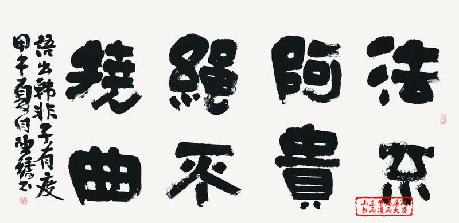 法不
阿貴
繩不
撓曲
語出韩非子有度
甲午夏